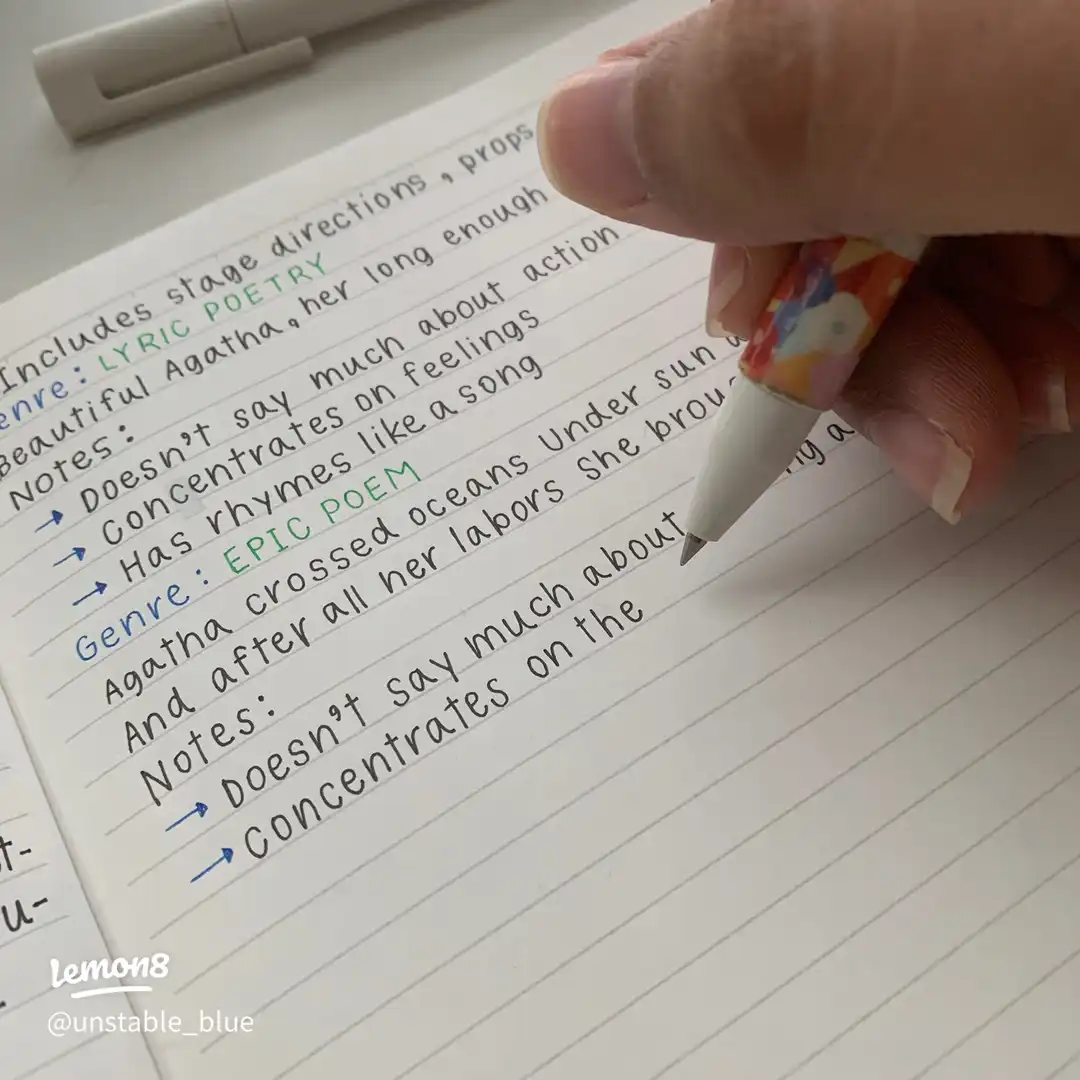 Includes stage directions, props
enre: LYRIC POETRY
Beautiful Agatha, her long enough
Notes:
→ Doesn't say much about action
→ Concentrates on feelings
→ Has rhymes like a song
Genre: EPIC POEM
Agatha crossed oceans under sun a
And after all her labors she brou ng a
Notes:
→ Doesn't say much about
→ Concentrates on the
t-
u-
lemon8
@unstable_blue